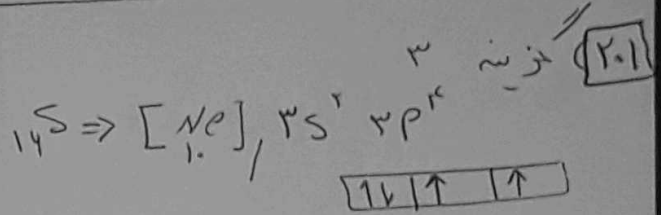 ۲۰۱) گزینه ۳
₁۶S ⇒ [₁۰Ne], ۳s² ۳p⁴
↑↓ ↑ ↑